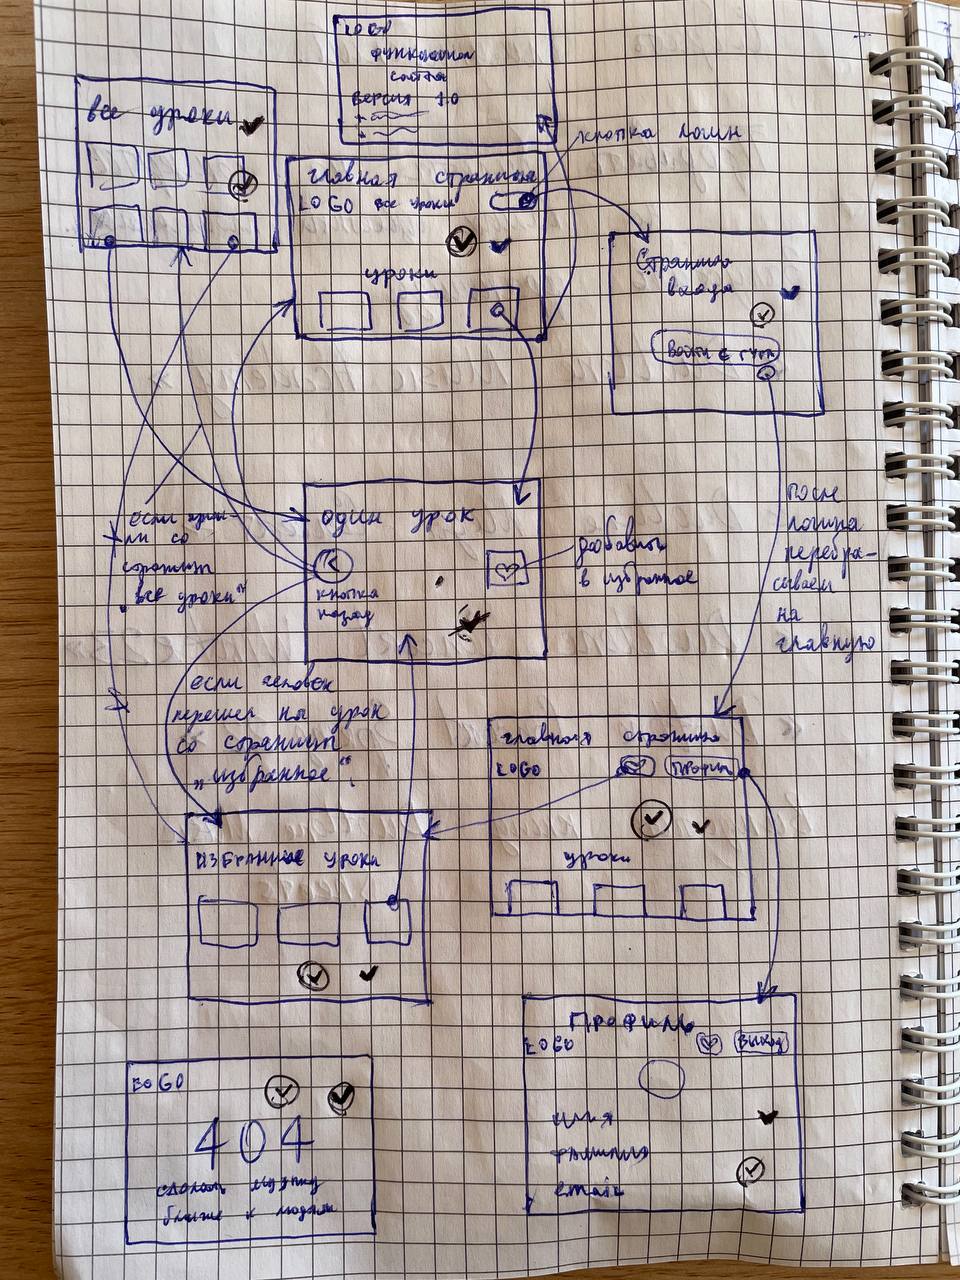 LOGO
функционал
сайта
версия 1.0
все уроки
кнопка логин
главная страница
LOGO все уроки
уроки
Страница
входа
Войти с гугл
один урок
кнопка
назад
добавить
в избранное
если приш-
ли со
страницы
"все уроки"
после
логина
перебра-
сываем
на
главную
если человек
перешел на урок
со страницы
"избранное"
главная страница
LOGO профиль
уроки
избранные уроки
Профиль
LOGO выход
имя
фамилия
email
LOGO
404
сделать музыку
ближе к людям